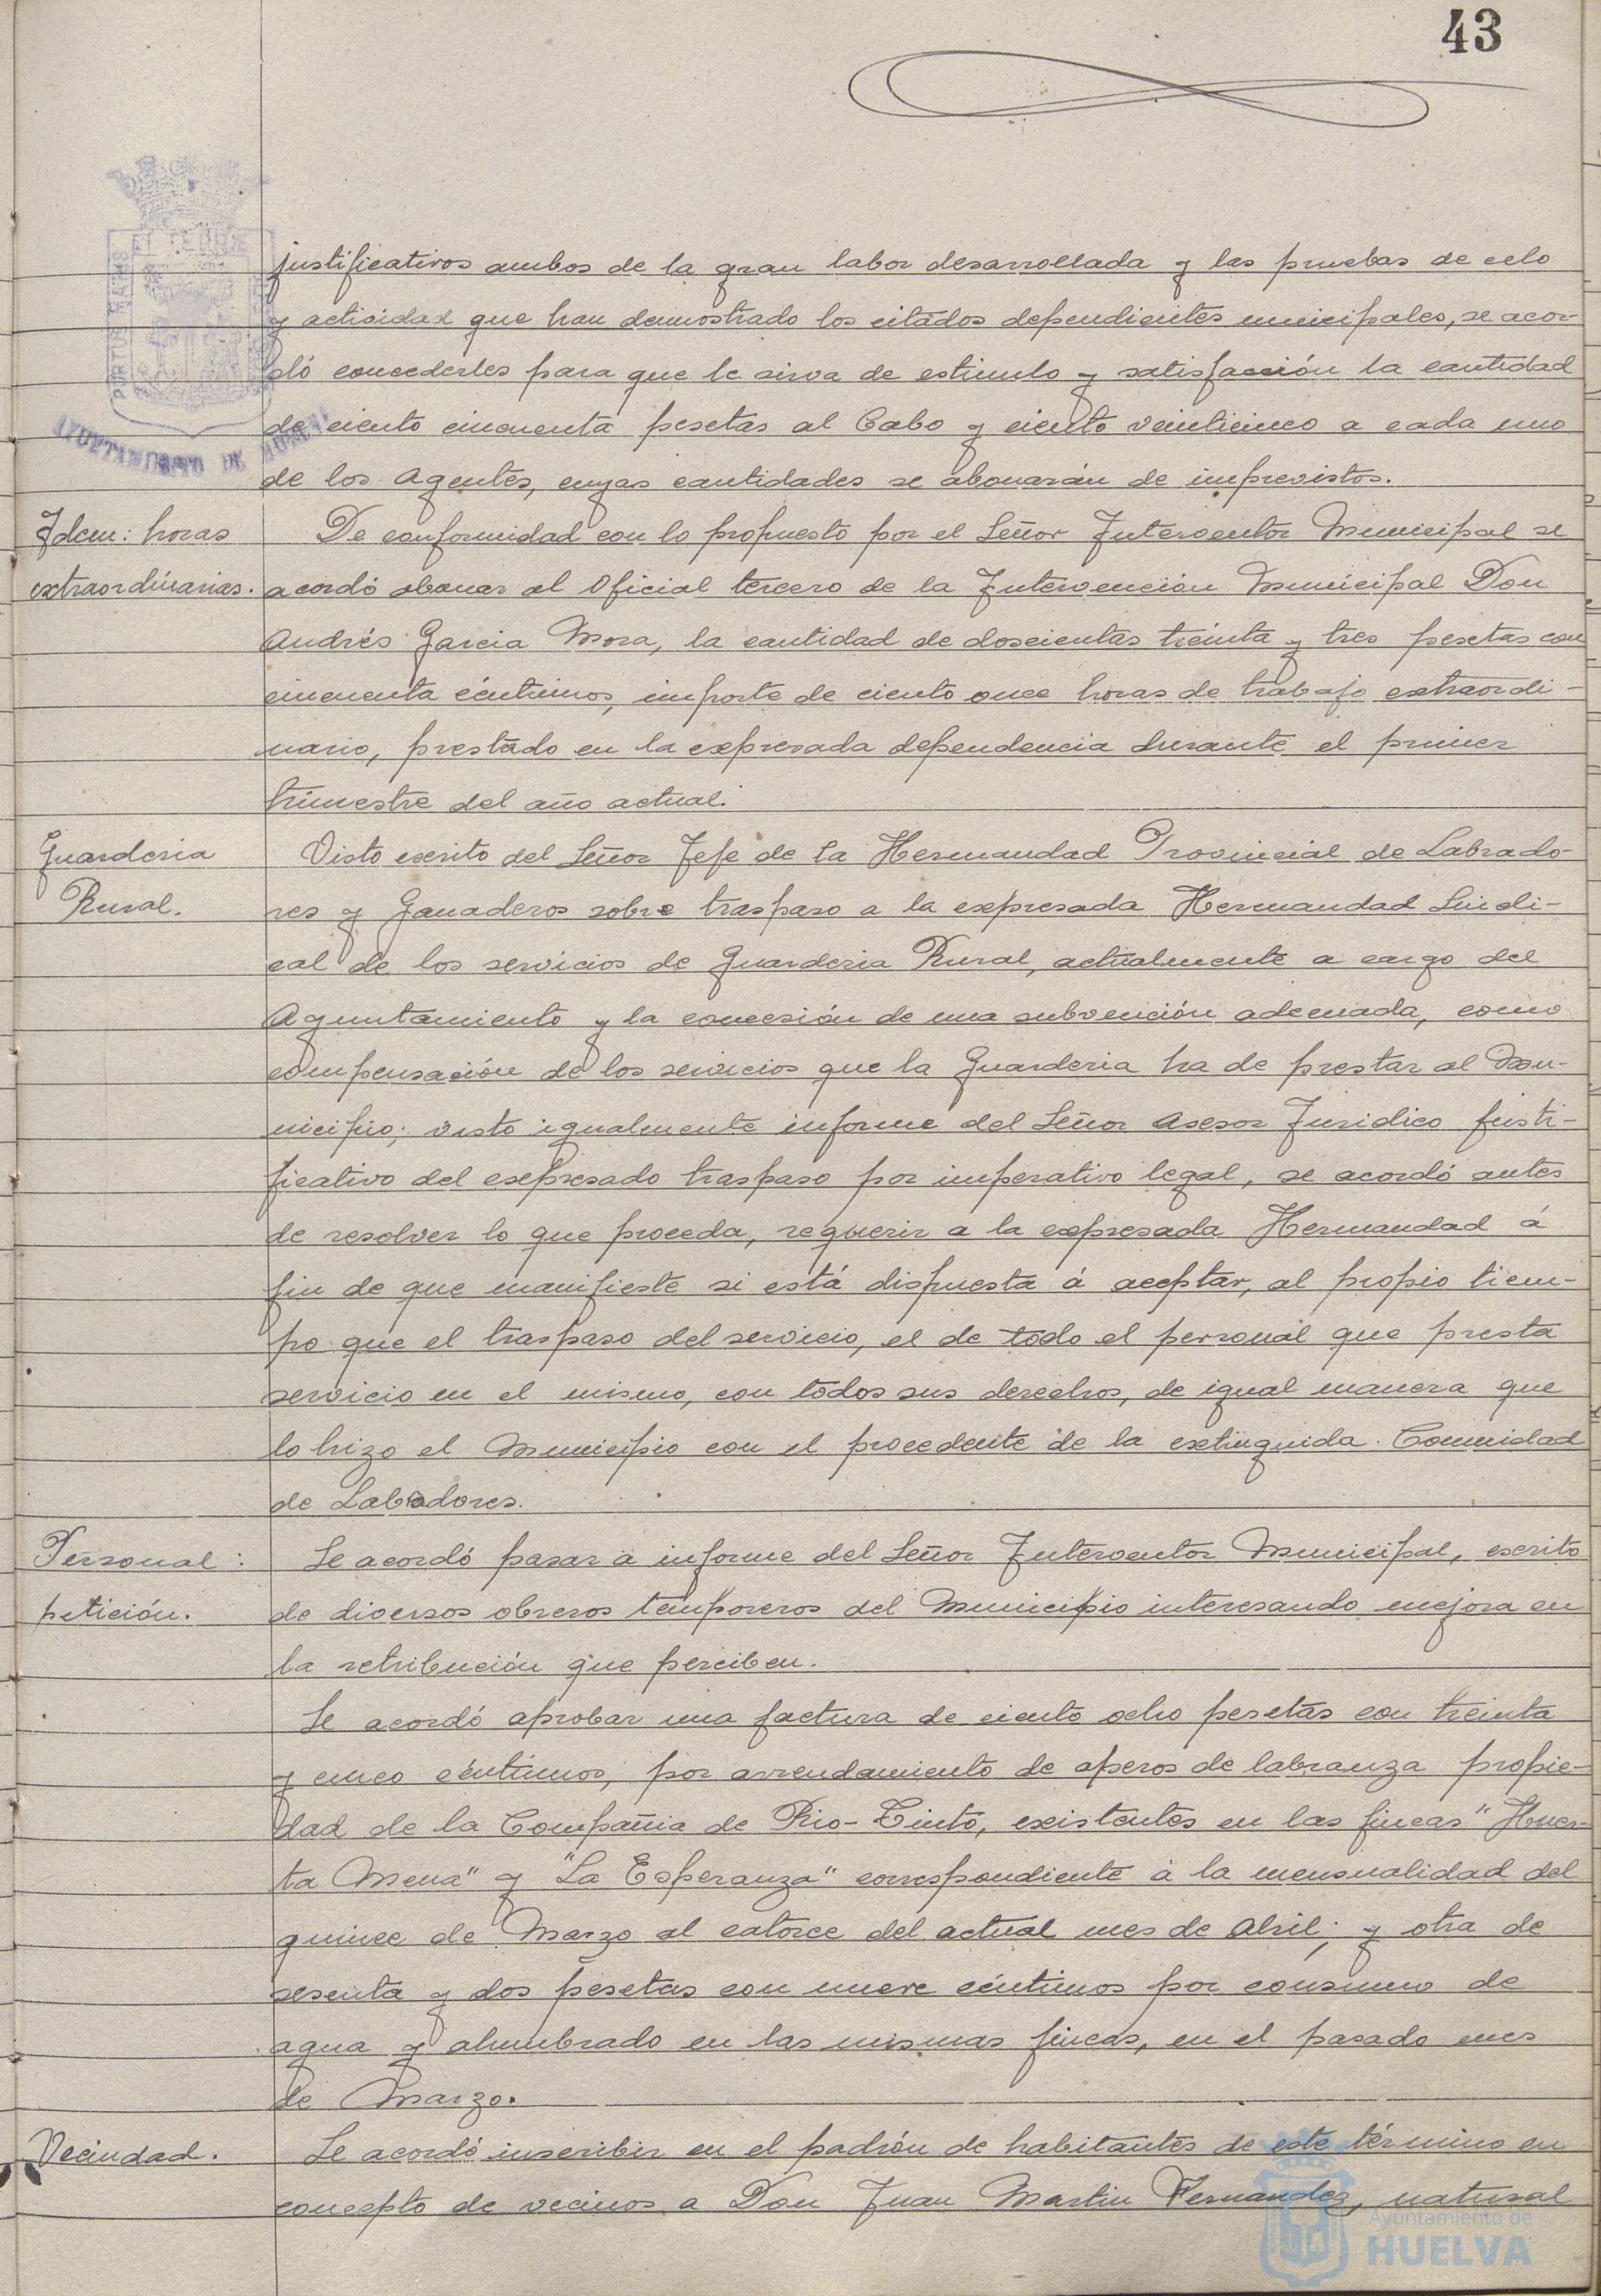 43
justificativos ambos de la gran labor desarrollada y las pruebas de celo
y actividad que han demostrado los citados dependientes municipales, se acor-
dó concederles para que le sirva de estimulo y satisfacción la cantidad
de ciento cincuenta pesetas al Cabo y ciento veinticinco a cada uno
de los Agentes, cuyas cantidades se abonarán de imprevistos.
PORTUS MARIS
ET TERRE
AYUNTAMIENTO DE HUELVA
Idem: horas
extraordinarias.
De conformidad con lo propuesto por el Señor Interventor Municipal se
acordó abonar al Oficial tercero de la Intervención Municipal Don
Andrés Garcia Mora, la cantidad de doscientas treinta y tres pesetas con
cincuenta céntimos, importe de ciento once horas de trabajo extraordi-
nario, prestado en la expresada dependencia durante el primer
trimestre del año actual.
Guarderia
Rural.
Visto escrito del Señor Jefe de la Hermandad Provincial de Labrado-
res y Ganaderos sobre traspaso a la expresada Hermandad Sindi-
cal de los servicios de Guarderia Rural, actualmente a cargo del
Ayuntamiento y la concesión de una subvención adecuada, como
compensación de los servicios que la Guarderia ha de prestar al Mu-
nicipio; visto igualmente informe del Señor Asesor Juridico justi-
ficativo del expresado traspaso por imperativo legal, se acordó antes
de resolver lo que proceda, requerir a la expresada Hermandad á
fin de que manifieste si está dispuesta á aceptar, al propio tiem-
po que el traspaso del servicio, el de todo el personal que presta
servicio en el mismo, con todos sus derechos, de igual manera que
lo hizo el Municipio con el procedente de la extinguida Comunidad
de Labradores.
Personal:
petición.
Se acordó pasar a informe del Señor Interventor Municipal, escrito
de diversos obreros temporeros del Municipio interesando mejora en
la retribución que perciben.
Se acordó aprobar una factura de ciento ocho pesetas con treinta
y cinco céntimos, por arrendamiento de aperos de labranza propie-
dad de la Compañia de Rio-Tinto, existentes en las fincas "Huer-
ta Mena" y "La Esperanza" correspondiente á la mensualidad del
quince de Marzo al catorce del actual mes de Abril; y otra de
sesenta y dos pesetas con nueve céntimos por consumo de
agua y alumbrado en las mismas fincas, en el pasado mes
de Marzo.
Vecindad.
Se acordó inscribir en el padrón de habitantes de este término en
concepto de vecinos a Don Juan Martin Fernandez, natural
Ayuntamiento de
HUELVA